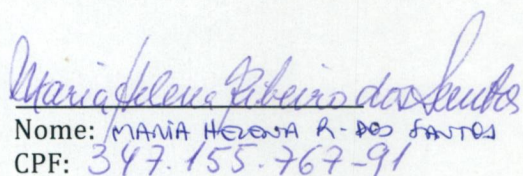 Maria Helena Ribeiro dos Santos
Nome: MARIA HELENA R. DOS SANTOS
CPF: 347.155.767-91